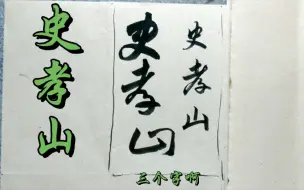 史孝山
史孝山
史孝山
三个字啊